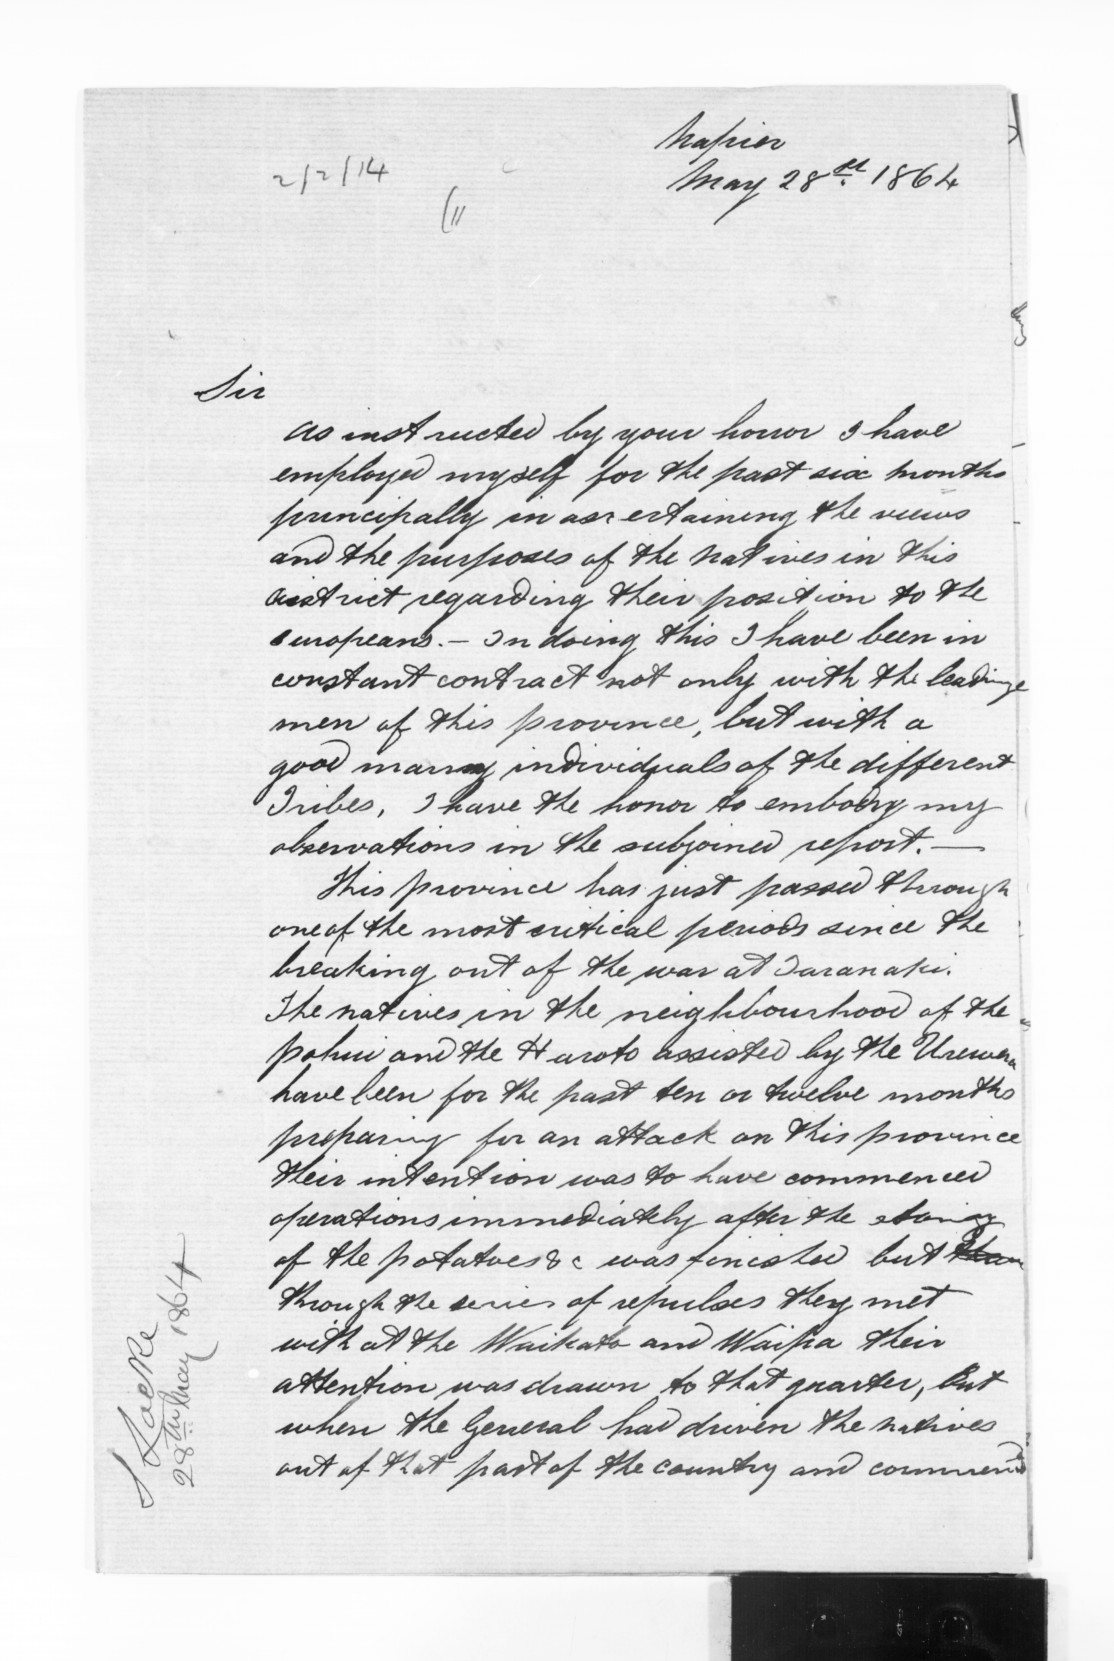 Napier
May 28th. 1864
2/2/14
Sir
As instructed by your honor I have
employed myself for the past six months
principally in ascertaining the views
and the purposes of the natives in this
district regarding their position to the
europeans. — In doing this I have been in
constant contract not only with the leading
men of this province, but with a
good many individuals of the different
Tribes, I have the honor to embody my
observations in the subjoined report. —
This province has just passed through
one of the most critical periods since the
breaking out of the war at Taranaki.
The natives in the neighbourhood of the
pohui and the Haroto assisted by the Urewera
have been for the past ten or twelve months
preparing for an attack on this province
their intention was to have commenced
operations immediately after the storing
of the potatoes &c was finished but
through the series of repulses they met
with at the Waikato and Waipa their
attention was drawn to that quarter, But
when the General had driven the natives
out of that part of the country and
S Locke
28th May 1864